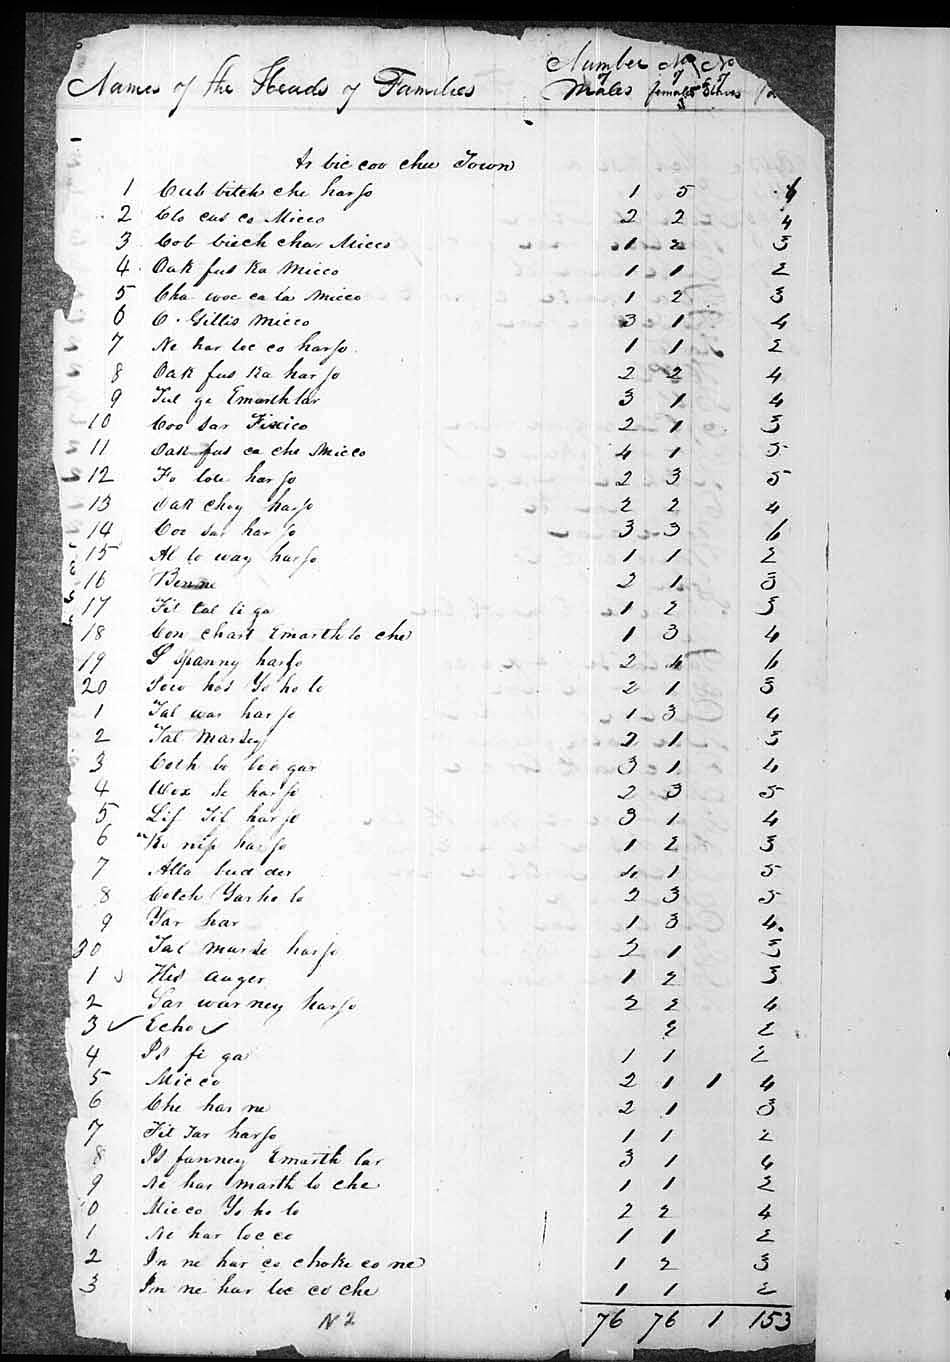 Names of the Heads of Families Number of Males No of females No of Slaves
Ar bic coo chee Town
1 Cub bitch che harjo 1 5 6
2 Clo cus co Micco 2 2 4
3 Cob biech char Micco 1 2 3
4 Oak fus ka Micco 1 1 2
5 Cha woc ca la Micco 1 2 3
6 O. Gillis Micco 3 1 4
7 Ne har loc co harjo 1 1 2
8 Oak fus ka harjo 2 2 4
9 Tul ge Emarthlar 3 1 4
10 Coo sar Fixico 2 1 3
11 Oak fus ca che Micco 4 1 5
12 Fo lote harjo 2 3 5
13 Oak choy harjo 2 2 4
14 Coo sar harjo 3 3 6
15 Al lo way harjo 1 1 2
16 Benne 2 1 3
17 Fil tal li ga 1 2 3
18 Con chart Emarthlo che 1 3 4
19 I spanny harjo 2 4 6
20 Sow hos Yo ho lo 2 1 3
1 Tal war harjo 1 3 4
2 Tal Marsey 2 1 3
3 Coth lo loo gar 3 1 4
4 Wox se harjo 2 3 5
5 Lif Til harjo 3 1 4
6 Ko nip harjo 1 2 3
7 Alla bud der 4 1 5
8 Cotch Yar ho lo 2 3 5
9 Yar har 1 3 4
30 Tal murse harjo 2 1 3
1 His auger 1 2 3
2 Sar war ney harjo 2 2 4
3 ✓ Echo ✓ 2 2
4 Is fi ga 1 1 2
5 Micco 2 1 1 4
6 Che har ne 2 1 3
7 Fil Tar harjo 1 1 2
8 Is fanney Emarth lar 3 1 4
9 Ne har marth lo che 1 1 2
0 Micco Yo ho lo 2 2 4
1 Ne har loc co 1 1 2
2 In ne har co choke co ne 1 2 3
3 In ne har loc co che 1 1 2
76 76 1 153
N 2